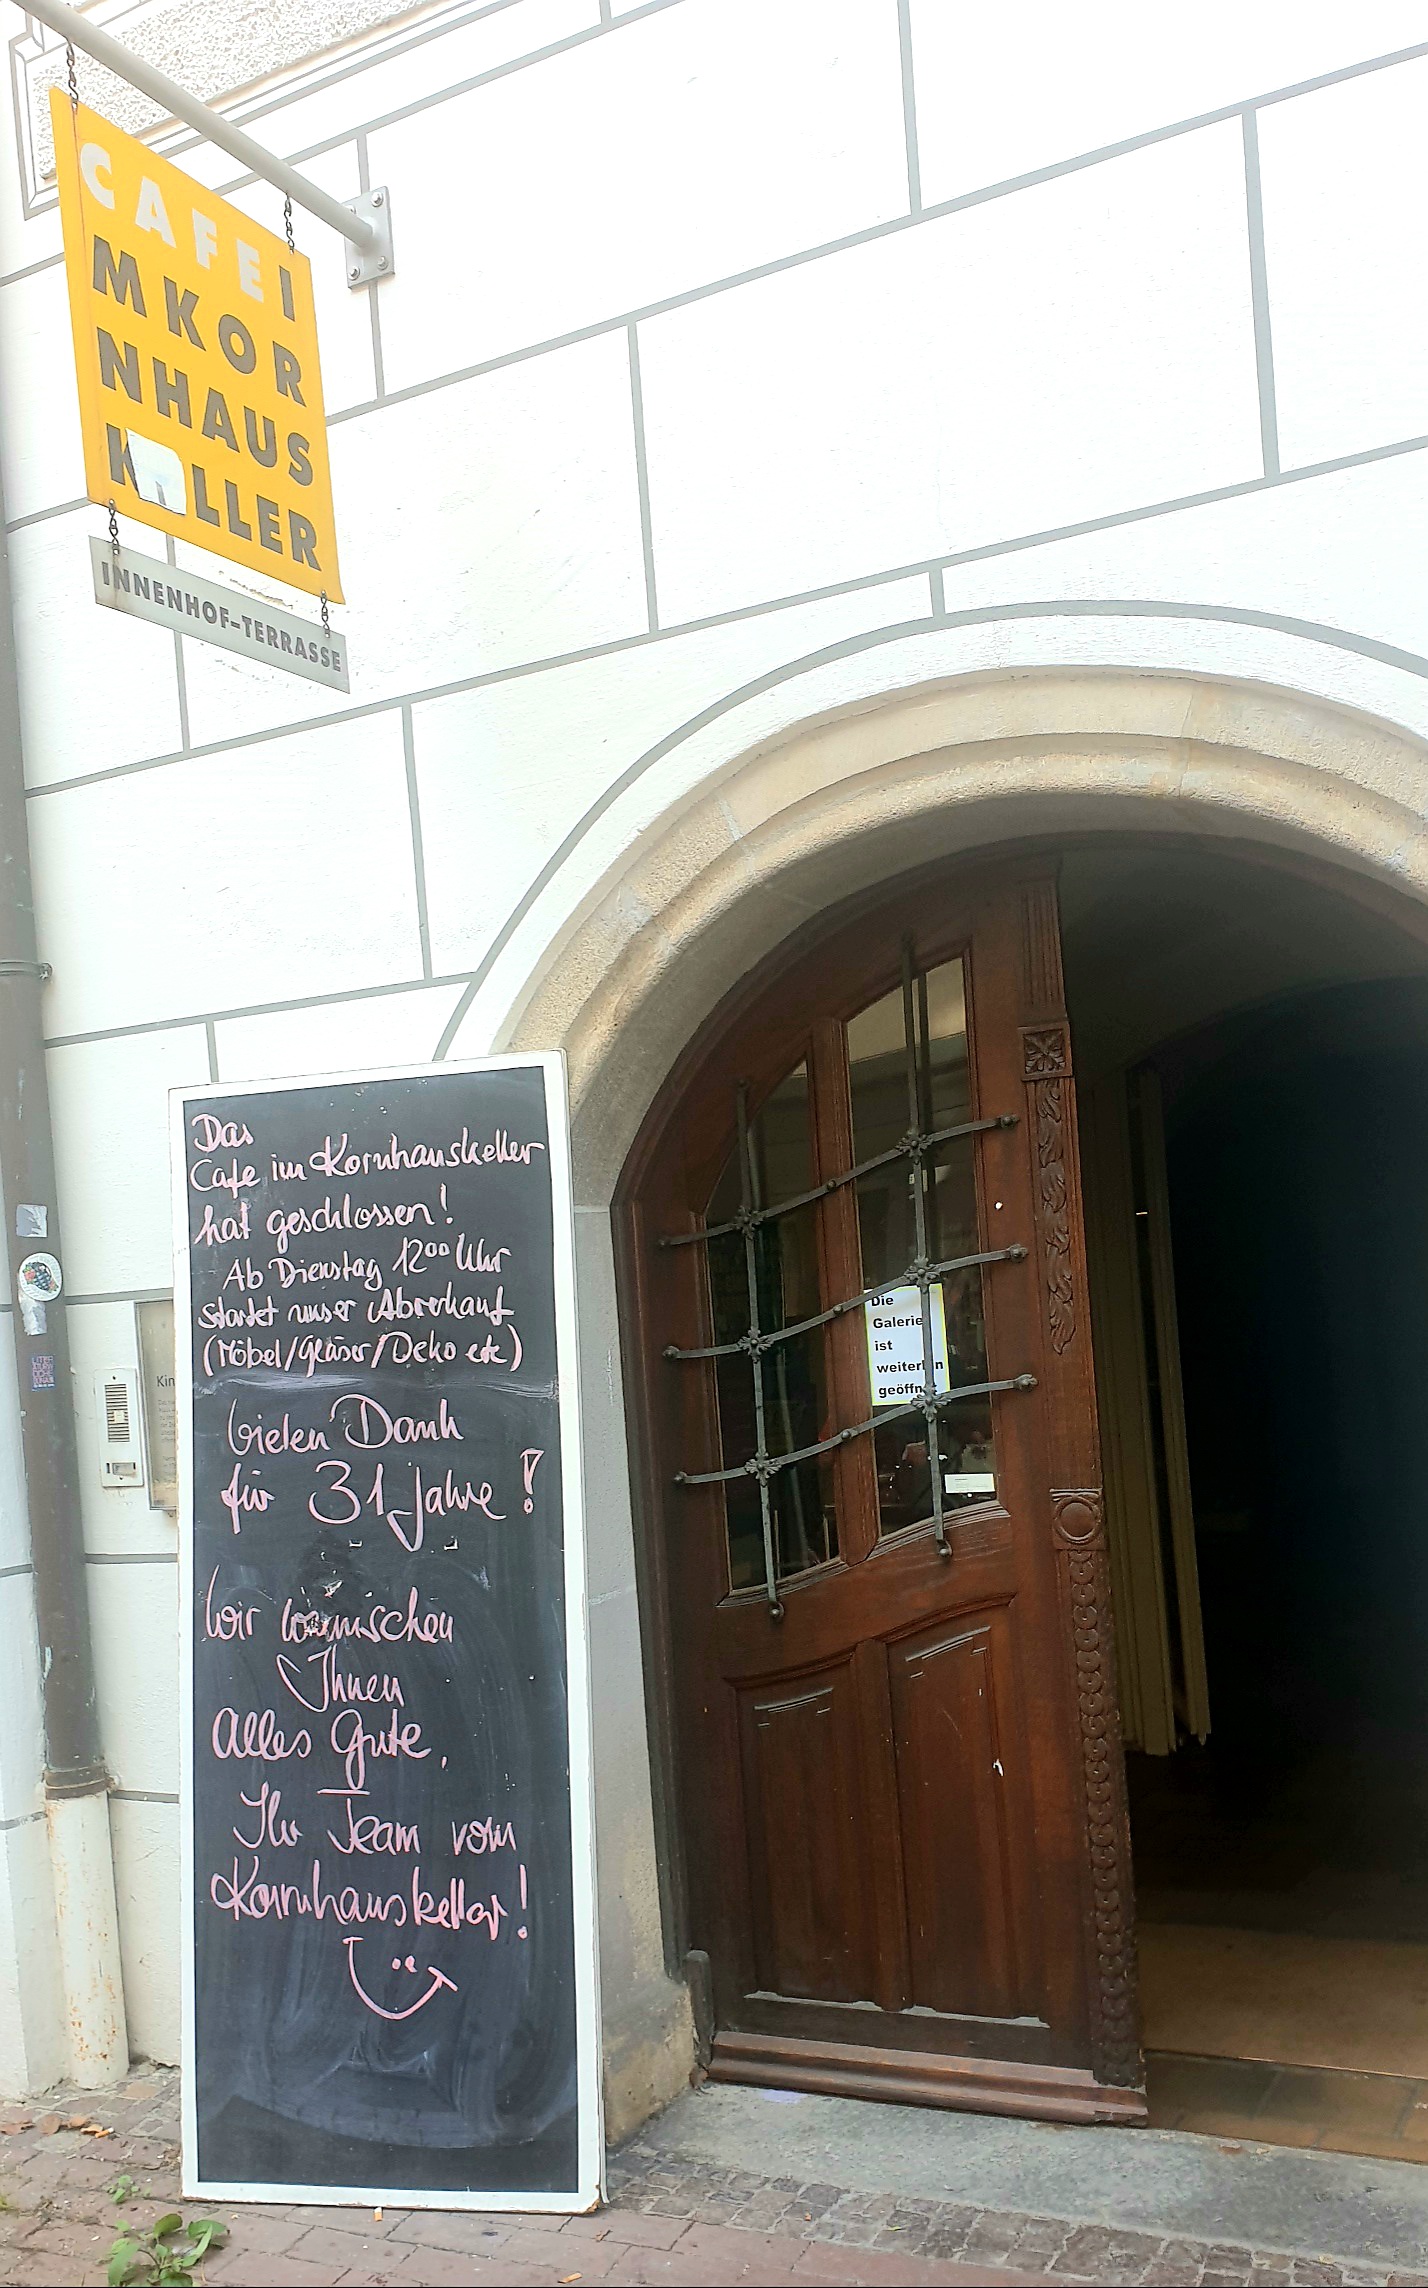 CAFE I
M KOR
NHAUS
K LLER
INNENHOF-TERRASSE
Das
Cafe im Kornhauskeller
hat geschlossen!
Ab Dienstag 12⁰⁰ Uhr
startet unser Abverkauf
(Möbel/Gläser/Deko etc)
Vielen Dank
für 31 Jahre!
Wir wünschen
Ihnen
Alles Gute,
Ihr Team vom
Kornhauskeller!
Die
Galerie
ist
weiterhin
geöffnet
Kin